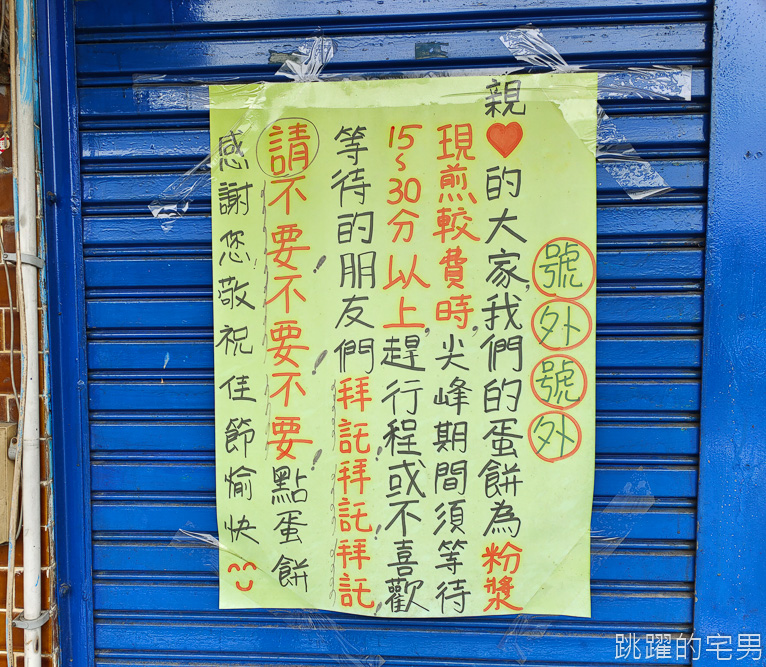 號外號外
親♥的大家,我們的蛋餅為粉漿
現煎較費時,尖峰期間須等待
15~30分以上,趕行程或不喜歡
等待的朋友們拜託!拜託!拜託!
請不要!不要!不要!點蛋餅
感謝您敬祝佳節愉快
跳躍的宅男